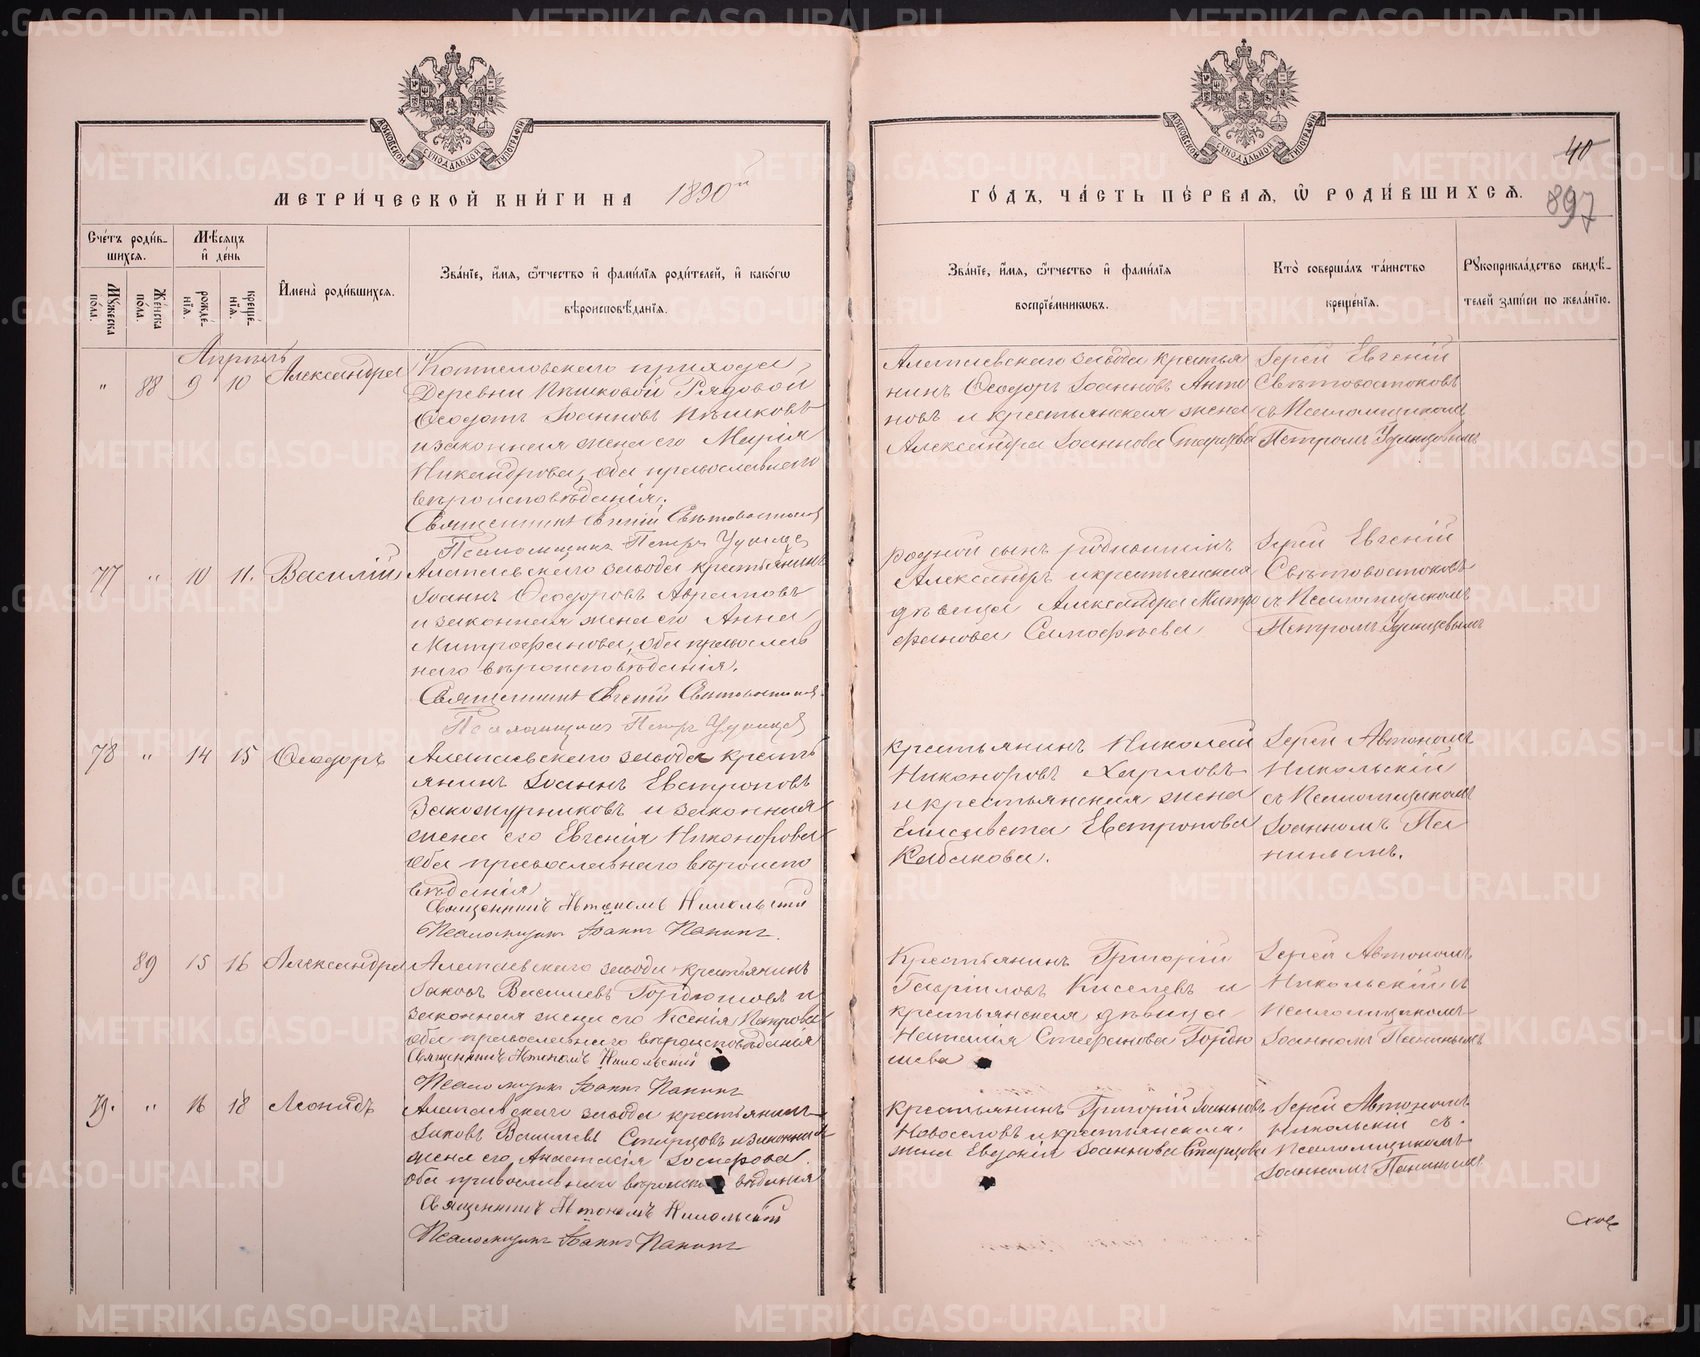 МЕТРИ́ЧЕСКОЙ КНИ́ГИ НА 1890й
ГО́ДЪ, ЧА́СТЬ ПЕ́РВАЯ, Ѡ РОДИ́ВШИХСЯ.
40
897
Сче́тъ роди́в-
шихся.
Му́жеска по́ла.
Же́нска по́ла.
Мѣ́сяцъ
и де́нь
рожде́-
нїя.
креще́-
нїя.
Имена̀ роди́вшихся.
Зва́нїе, и́мя, ѻ́тчество и фами́лїя роди́телей, и како́гѡ
вѣроисповѣ́данїя.
Зва́нїе, и́мя, ѻ́тчество и фами́лїя
воспрїе́мниковъ.
Кто̀ соверша́лъ та́инство
креще́нїя.
Рꙋкоприкла́дство свидѣ́-
телей за́писи по жела́нїю.
Апрѣль
" 88 9 10 Александра
Деревни Пѣшковой Рядовой
Ѳеодотъ Іоанновъ Пѣшковъ
и законная жена его Марія
Никандрова, оба православнаго
вѣроисповѣданія.
Священникъ Евгеній Свѣтовостоковъ
Псаломщикъ Петръ Удинцевъ
Алапаевскаго завода крестья
нинъ Ѳеодоръ Іоанновъ Анто
новъ и крестьянская жена
Александра Іоаннова Старцова
Іерей Евгеній
Свѣтовостоковъ
съ Псаломщикомъ
Петромъ Удинцевымъ
77 " 10 11. Василій
Алапаевскаго завода крестьянинъ
Іоаннъ Ѳеодоровъ Абрамовъ
и законная жена его Анна
Митрофанова, оба православ
наго вѣроисповѣданія.
Священникъ Евгеній Свѣтовостоковъ
Псаломщикъ Петръ Удинцевъ
родной сынъ
Александръ и крестьянская
дѣвица Александра Митро
фанова
Іерей Евгеній
Свѣтовостоковъ
съ Псаломщикомъ
Петромъ Удинцевымъ
78 " 14 15 Ѳеодоръ
Алапаевскаго завода кресть
янинъ Іоаннъ Евстроповъ
Закожурниковъ и законная
жена его Евгенія Никонорова
оба православнаго вѣроиспо
вѣданія
Священникъ Автономъ Никольскій
Псаломщикъ Іоаннъ Панинъ
крестьянинъ Николай
Никоноровъ Харловъ
и крестьянская жена
Елисавета Евстропова
Кабакова.
Іерей Автономъ
Никольскій
съ Псаломщикомъ
Іоанномъ Па
нинымъ.
89 15 16 Александра
Алапаевскаго завода крестьянинъ
Іаковъ Василіевъ Гордюшевъ и
законная жена его Ксенія Петрова
оба православнаго вѣроисповѣданія
Священникъ Автономъ Никольскій
Псаломщикъ Іоаннъ Панинъ
Крестьянинъ Григорій
Гавріиловъ Киселевъ и
крестьянская дѣвица
Наталія Стефанова Гордю
шева
Іерей Автономъ
Никольскій съ
Псаломщикомъ
Іоанномъ Панинымъ
79. " 16 18 Леонидъ
Алапаевскаго завода крестьянинъ
Іаковъ Василіевъ Старцовъ и законная
жена его Анастасія Іосифова
оба православнаго вѣроисповѣданія
Священникъ Автономъ Никольскій
Псаломщикъ Іоаннъ Панинъ
крестьянинъ Григорій Іоанновъ
Новоселовъ и крестьянская
жена Евдокія Іоаннова Старцова
Іерей Автономъ
Никольскій съ
Псаломщикомъ
Іоанномъ Панинымъ
METRIKI.GASO-URAL.RU